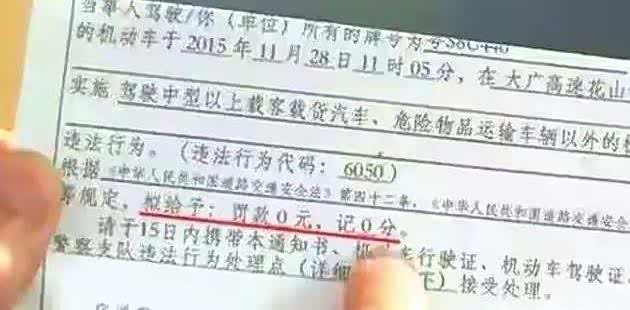 当事人驾驶/你（单位）所有的牌号为粤S6C440
的机动车于2015年11月28日11时05分，在大广高速花山
实施驾驶中型以上载客载货汽车、危险物品运输车辆以外的机
违法行为。（违法行为代码：6050）
根据《中华人民共和国道路交通安全法》第四十二条，《中华人民共和国道路交通安全
等规定，拟给予：罚款0元，记0分。
请于15日内携带本通知书、机 车行驶证、机动车驾驶证
警察支队违法行为处理点（详细 下）接受处理。